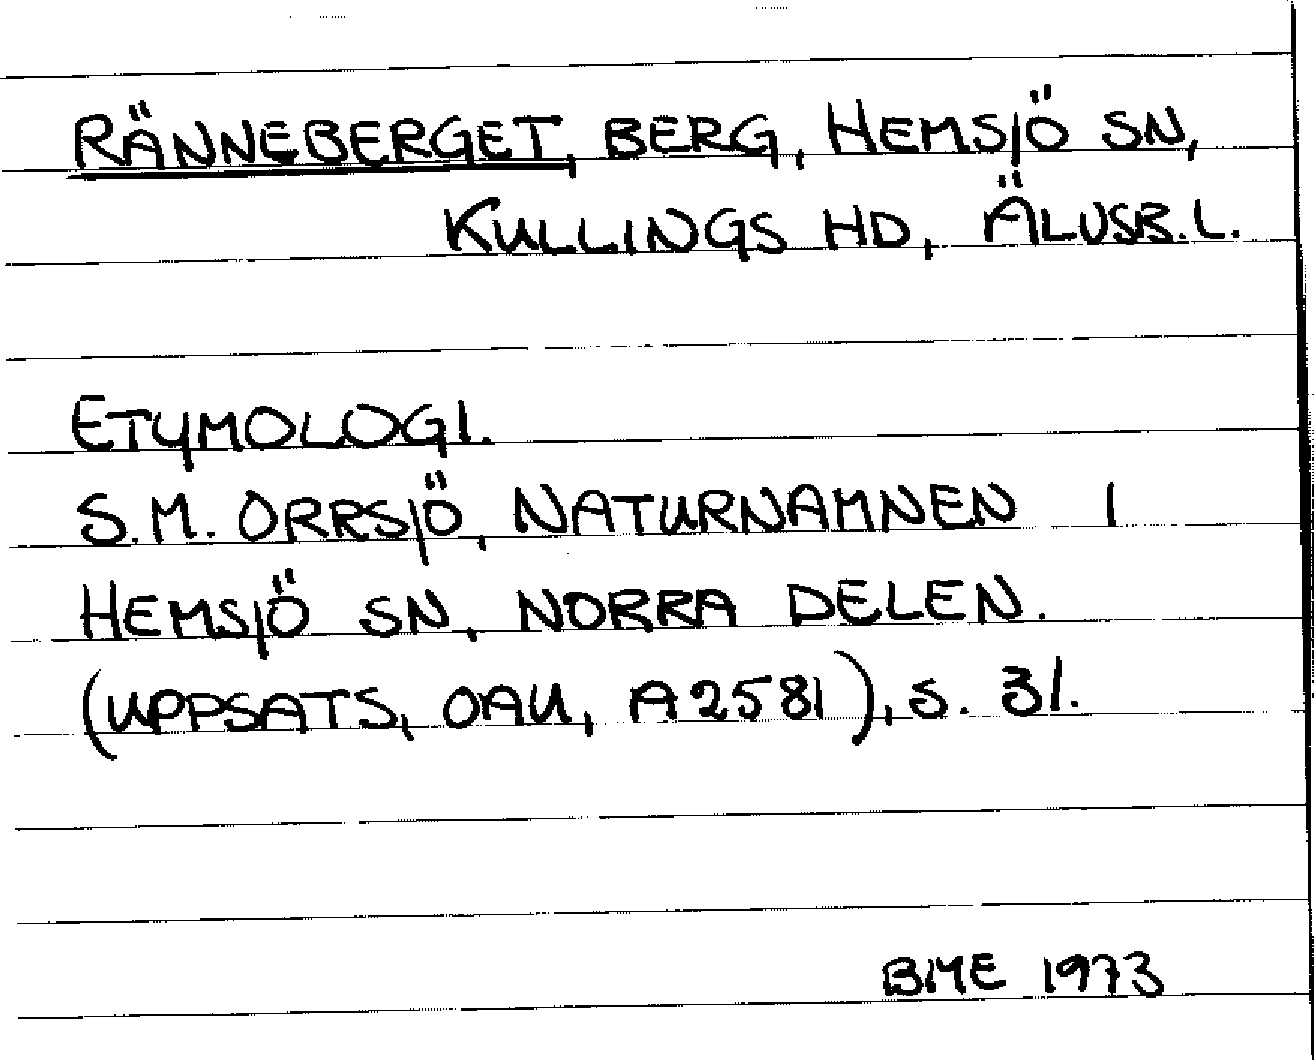 RÄNNEBERGET, BERG, HEMSJÖ SN,
KULLINGS HD, ÄLVSB. L.
ETYMOLOGI.
S.M. ORRSJÖ, NATURNAMNEN I
HEMSJÖ SN, NORRA DELEN.
(UPPSATS, OAU, A2581), S. 31.
BME 1973